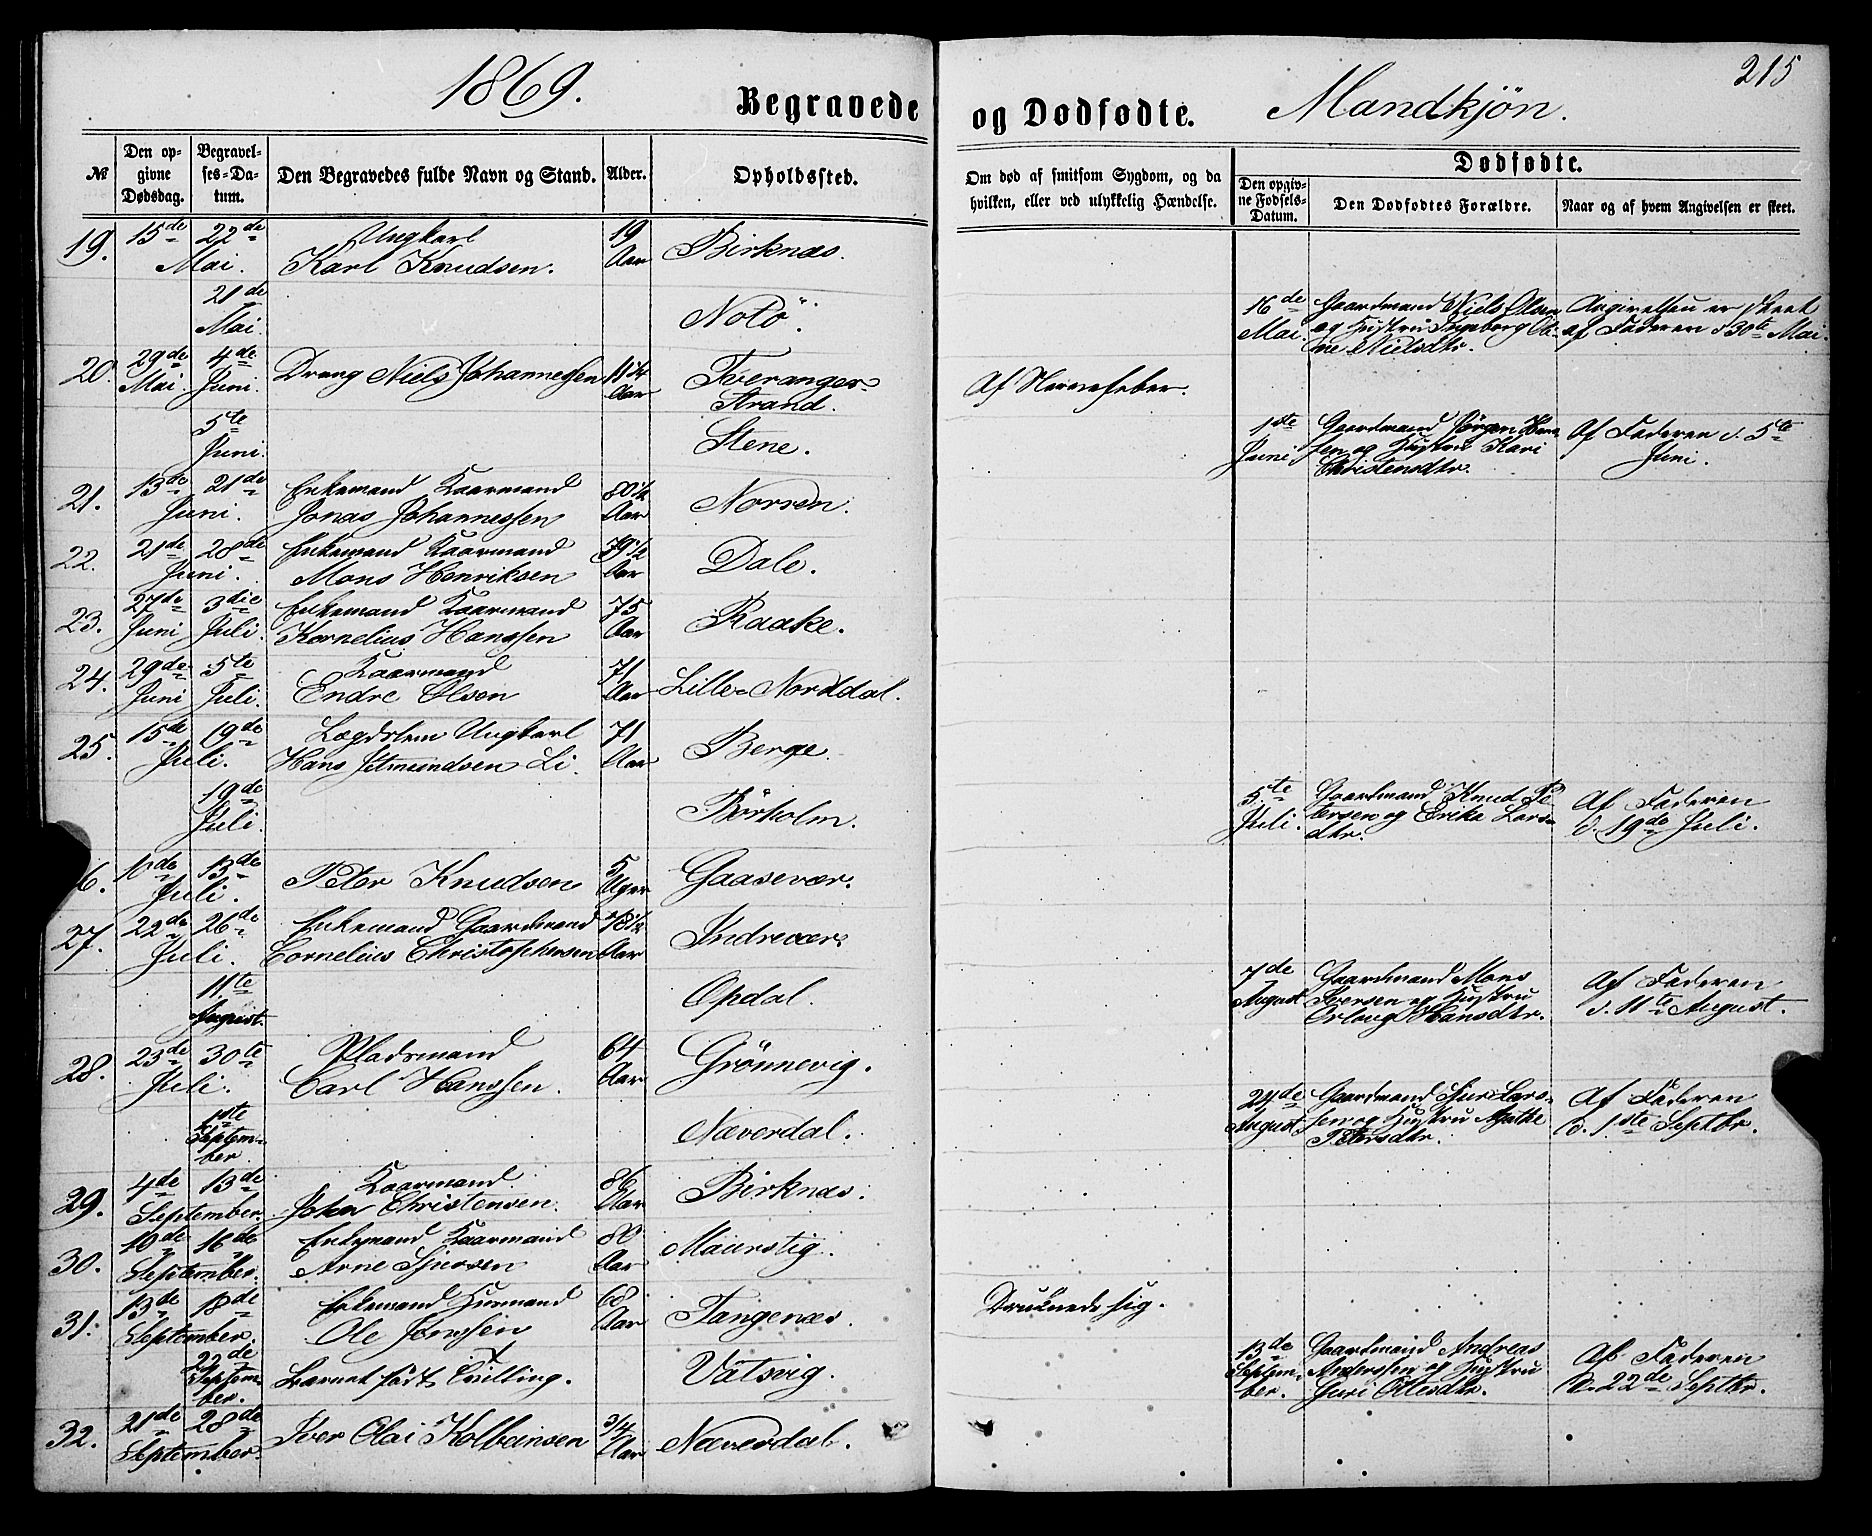 1869. Begravede og Dødfødte. Mandkjøn. 215
№ Den opgivne Dødsdag. Begravelses-Datum. Den Begravedes fulde Navn og Stand. Alder. Opholdssted. Om død af smitsom Sygdom, og da hvilken, eller ved ulykkelig Hændelse. Dødfødte. Den opgivne Fødsels-Datum. Den Dødfødtes Forældre. Naar og af hvem Angivelsen er skeet.
19. 15de 22de Mai. Ungkarl Karl Knudsen. 19 Aar Birknæs.
21de Mai. Notö. 16de Mai. Gaardmand Niels Olsen og Hustru Ingeborg Oline Nielsdtr. Angivelsen er skeet af Faderen d 30te Mai.
20. 29de Mai. 4de Juni. Dreng Niels Johannessen 11 1/4 Aar Tveranger-Strand. Af Nervefeber.
5te Juni. Stene. 1ste Juni Gaardmand Jörgen Hansen og Hustru Kari Christensdtr. Af Faderen d. 5te Juni.
21. 13de 21de Juni. Enkemand Kaarmand Jonas Johannessen 80 1/2 Aar Norren.
22. 21de 28de Juni. Enkemand Kaarmand Mons Henriksen 79 1/2 Aar Dale.
23. 27de Juni 3die Juli. Enkemand Kaarmand Kornelius Hanssen 75 Aar Raake.
24. 29de Juni 5te Juli. Kaarmand Endre Olsen 71 Aar Lille-Norddal.
25. 15de 19de Juli. Lægdslem Ungkarl Hans Jetmundsen Li. 71 Aar Berge.
19de Juli. Börholm. 5te Juli. Gaardmand Knud Petersen og Erika Larsdtr. Af Faderen d. 19de Juli.
6. 10de 13de Juli. Peter Knudsen 5 Uger Gaasevær.
27. 22de 26de Juli. Enkemand Gaardmand Cornelius Christophersen 78 1/2 Aar Indrevær.
11te August. Opdal. 7de August Gaardmand Mons Iversen og Hustru Erlaug Hansdtr. Af Faderen d. 11te August.
28. 23de 30te Juli. Pladsmand Carl Hanssen. 64 Aar Grönnevig.
1ste September. Næverdal. 24de August. Gaardmand Sjur Larssen og Hustru Agathe Petersdtr. Af Faderen d. 1ste Septbr.
29. 4de 13de September. Kaarmand John Christensen. 86 Aar Birknæs.
30. 10de 16de September. Enkemand Kaarmand Arne Sjursen 80 Aar Maurstig.
31. 13de 18de September. Enkemand Husmand Ole Jonssen 68 Aar Tangenæs. Druknede sig.
22de September. Barnet född Tvilling. Vatsvig. 13de September. Gaardmand Andreas Anderssen og Hustru Guri Ottesdtr. Af Faderen d. 22de Septbr.
32. 21de 28de September. Iver Olai Kolbeinsen 3/4 Aar Næverdal.